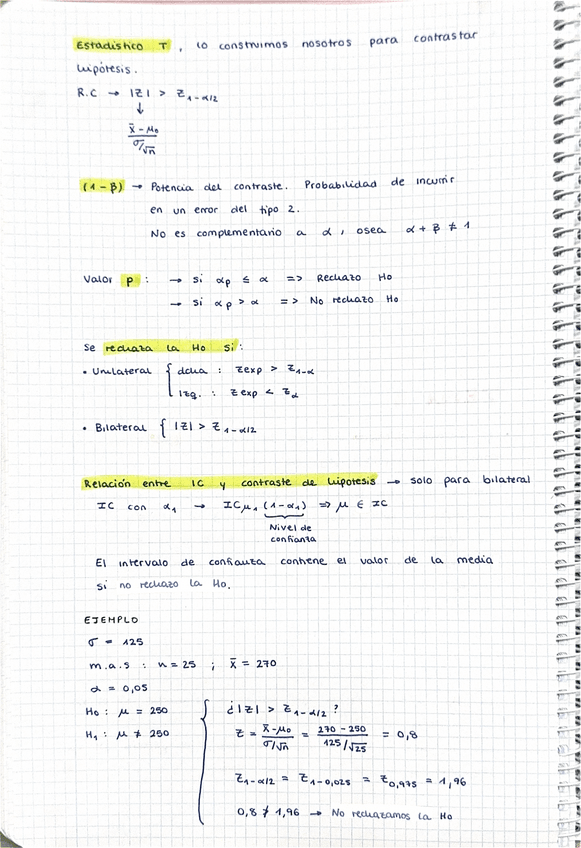 Estadístico T , lo construimos nosotros para contrastar
hipótesis.
R.C → |Z| > Z1-α/2
↓
x̄ - μ0
σ/√n
(1-β) → Potencia del contraste. Probabilidad de incurrir
en un error del tipo 2.
No es complementario a α , osea α + β ≠ 1
Valor p : → si αp ≤ α => Rechazo Ho
→ si αp > α => No rechazo Ho
Se rechaza la Ho si:
• Unilateral { dcha : Zexp > Z1-α
Izq. : Zexp < Zα
• Bilateral { |Z| > Z1-α/2
Relación entre IC y contraste de hipotesis → solo para bilateral
IC con α1 → ICμ1 (1-α1) => μ ∈ IC
Nivel de
confianza
El intervalo de confianza contiene el valor de la media
si no rechazo la Ho.
EJEMPLO
σ = 125
m.a.s : n = 25 ; x̄ = 270
α = 0,05
Ho : μ = 250
H1 : μ ≠ 250
¿|Z| > Z1-α/2 ?
Z = x̄-μ0 / σ/√n = 270 - 250 / 125/√25 = 0,8
Z1-α/2 = Z1-0,025 = Z0,975 = 1,96
0,8 ≯ 1,96 → No rechazamos la Ho